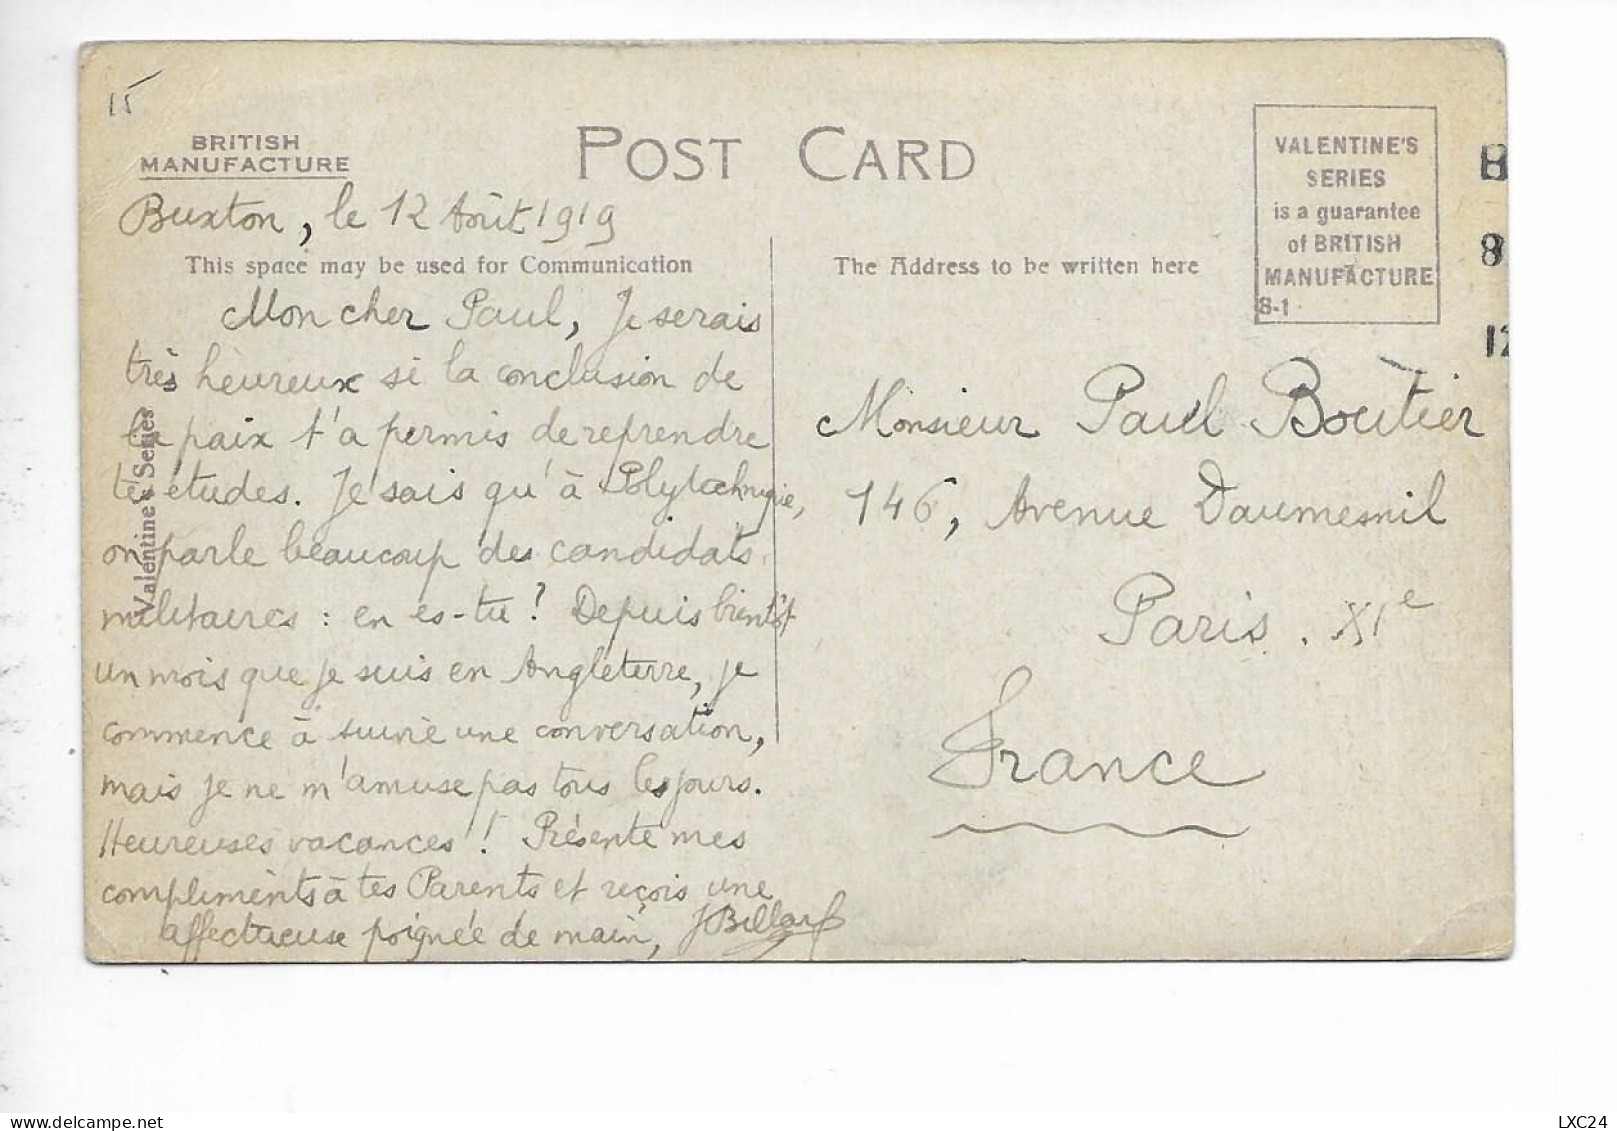 15
BRITISH
MANUFACTURE
POST CARD
VALENTINE'S
SERIES
is a guarantee
of BRITISH
MANUFACTURE
8-1
B
8
12
Buxton, le 12 Août 1919
This space may be used for Communication
The Address to be written here
Mon cher Paul, Je serais
très heureux si la conclusion de
la paix t'a permis de reprendre
tes études. Je sais qu'à Polytechnique,
on parle beaucoup des candidats
militaires : en es-tu ? Depuis bientôt
un mois que je suis en Angleterre, je
commence à suivre une conversation,
mais je ne m'amuse pas tous les jours.
Heureuses vacances ! Présente mes
compliments à tes Parents et reçois une
affectueuse poignée de main, JBillard
Valentine's Series
Monsieur Paul Boutier
146, Avenue Daumesnil
Paris. XIe
France
delcampe.net
LXC24